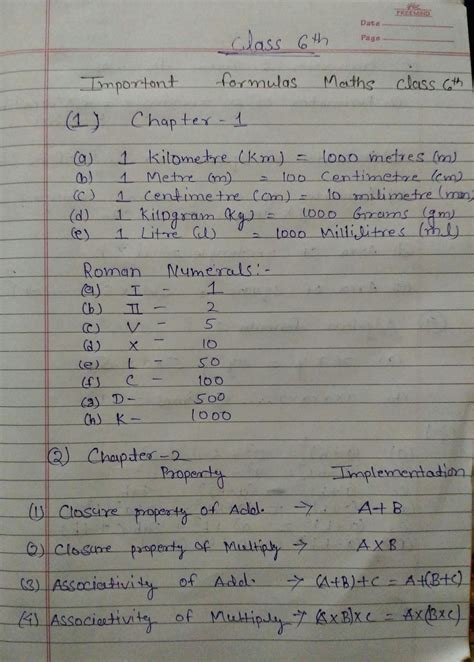 FREEMIND
Date
Page
Class 6th
Important formulas Maths class 6th
(1) Chapter - 1
(a) 1 Kilometre (Km) = 1000 metres (m)
(b) 1 Metre (m) = 100 Centimetre (cm)
(c) 1 Centimetre (cm) = 10 milimetre (mm)
(d) 1 Kilogram (kg) = 1000 Grams (gm)
(e) 1 Litre (l) = 1000 Millilitres (ml)
Roman Numerals:-
(a) I - 1
(b) II - 2
(c) V - 5
(d) X - 10
(e) L - 50
(f) C - 100
(g) D - 500
(h) K - 1000
(2) Chapter - 2
Property Implementation
(1) Closure property of Add. → A+B
(2) Closure property of Multiply → A×B
(3) Associativity of Add. → (A+B)+C = A+(B+C)
(4) Associativity of Multiply → (A×B)×C = A×(B×C)